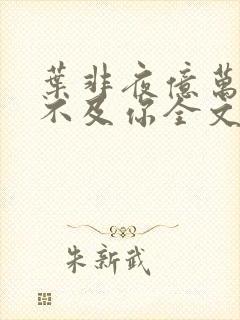 葉非夜億萬
不及你全文
朱新武